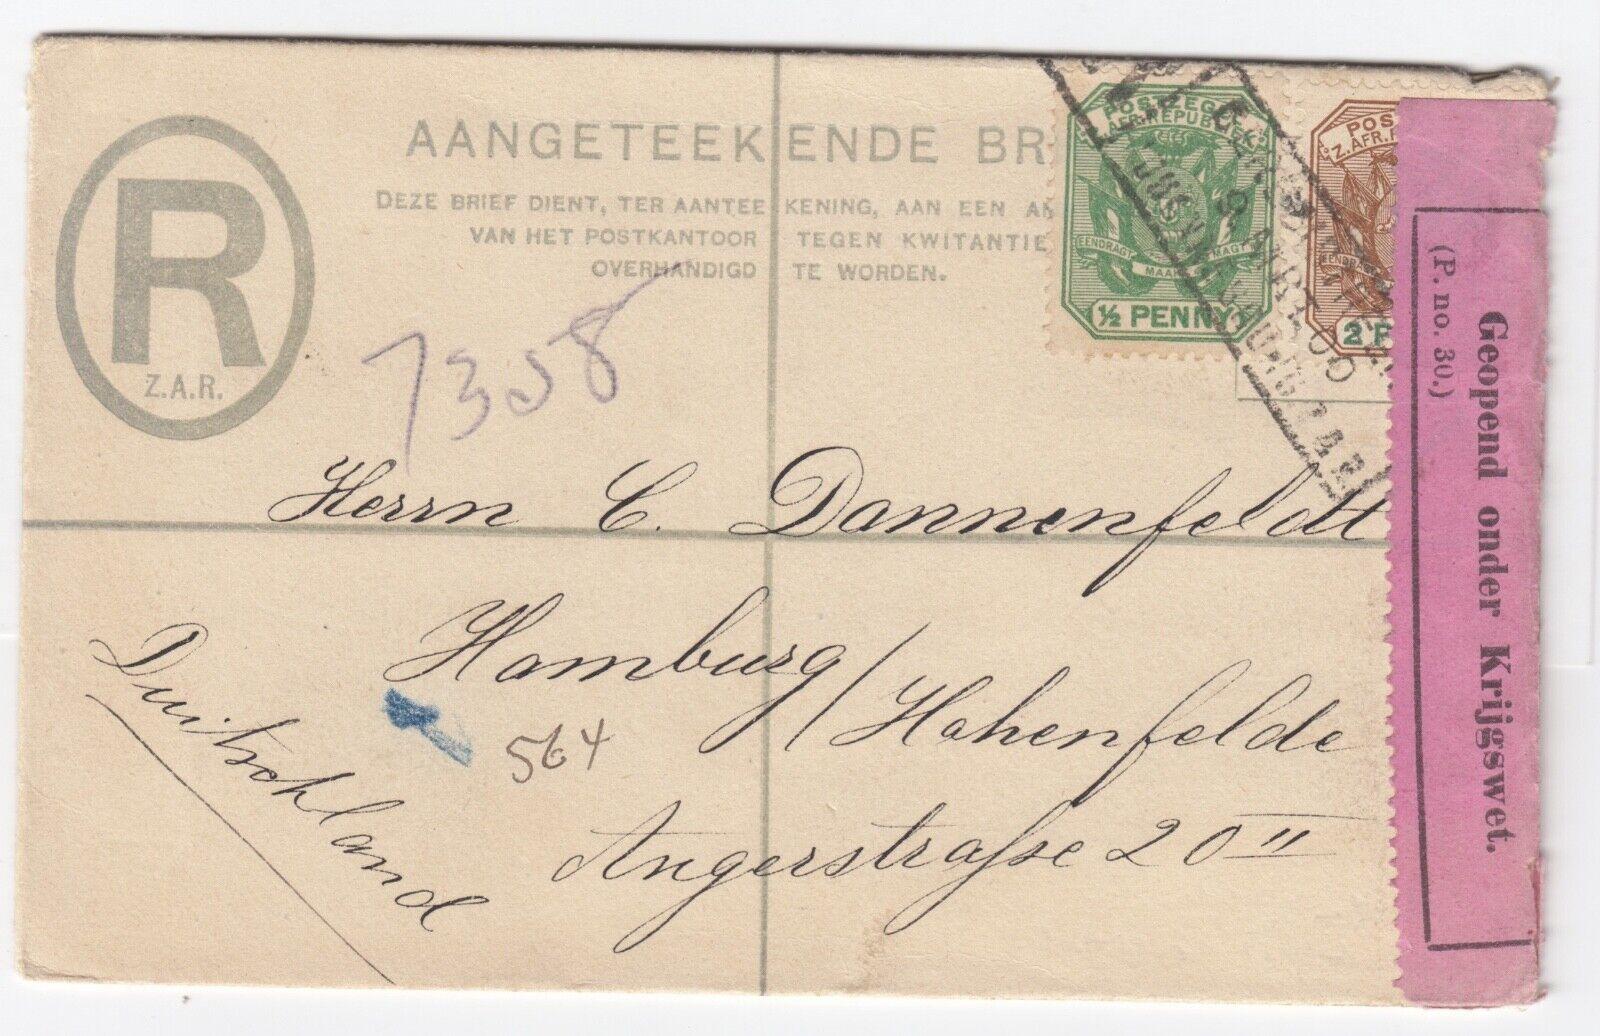 R
Z.A.R.
AANGETEEKENDE BR
DEZE BRIEF DIENT, TER AANTEEKENING, AAN EEN A
VAN HET POSTKANTOOR TEGEN KWITANTIE
OVERHANDIGD TE WORDEN.
POSTZEGEL
Z.AFR.REPUBLIEK
EENDRAGT MAAKT MAGT
½ PENNY
POS
Z.AFR.R
EENDRAGT
2 P
9 MRT 00
JOHANNESBURG.Z.A.R
7308
Herrn C. Dannenfeldt
Hamburg/Hohenfelde
Angerstraße 20 II
Duitschland
564
Geopend onder Krijgswet.
(P. no. 30.)